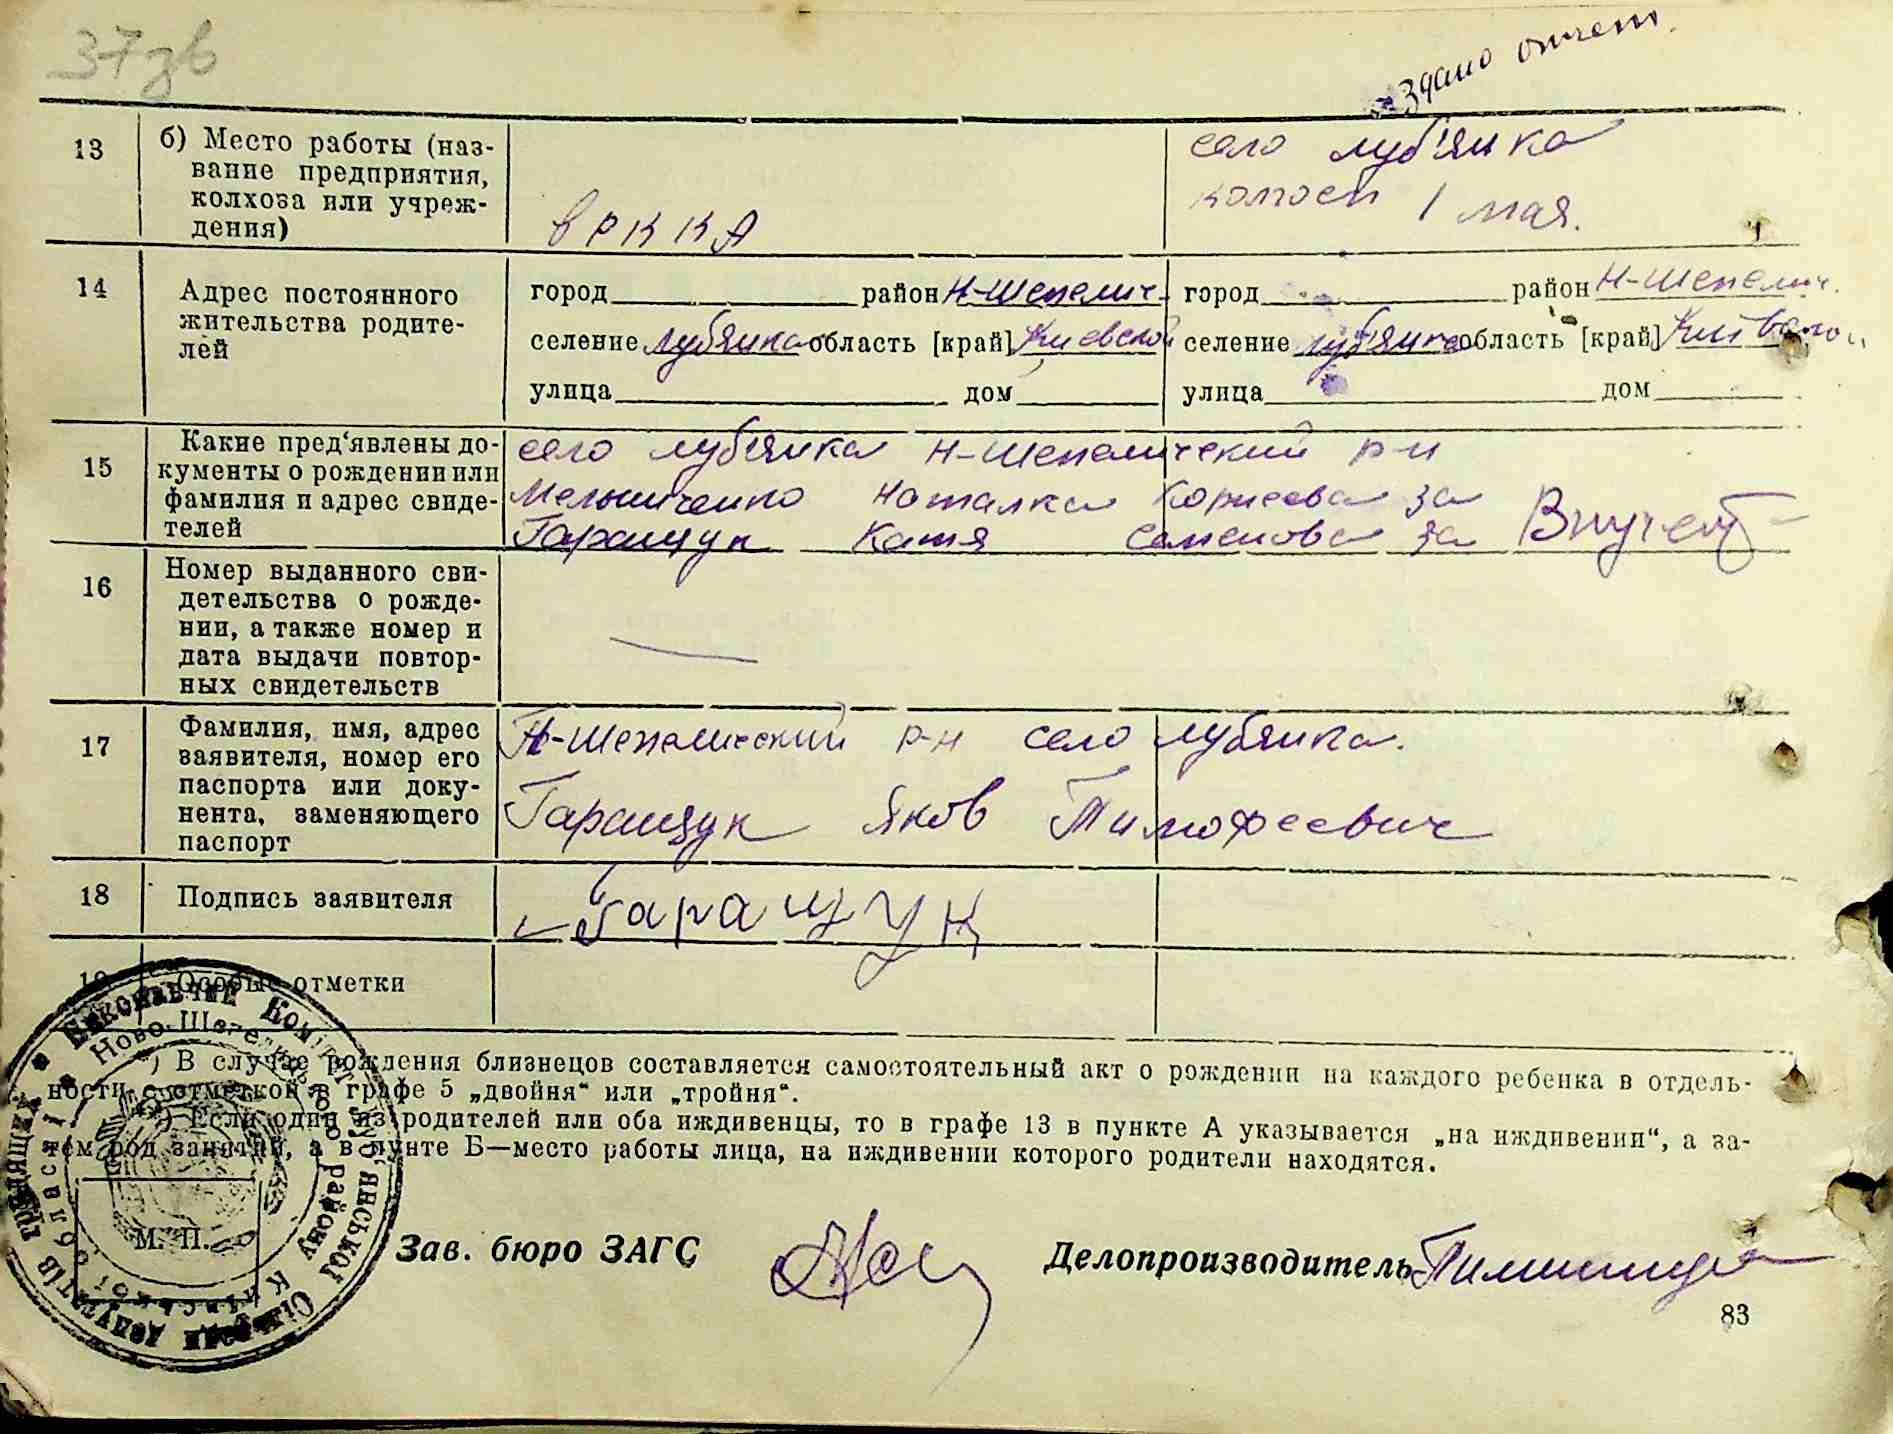 37зв
здано отчет.
13
б) Место работы (наз-
вание предприятия,
колхоза или учреж-
дения)
в Р К К А
село луб'янка
колгосп 1 мая.
14
Адрес постоянного
жительства родите-
лей
город район Н-Шепелич.
селение лубянка область [край] Киевской
улица дом
город район Н-Шепелич.
селение лубянка область [край]
улица дом
15
Какие пред‘явлены до-
кументы о рождении или
фамилия и адрес свиде-
телей
село луб'янка Н-Шепелический р-н
Мельниченко Наталка Корнеева за
Гаращук Катя Семенова за
16
Номер выданного сви-
детельства о рожде-
нии, а также номер и
дата выдачи повтор-
ных свидетельств
17
Фамилия, имя, адрес
заявителя, номер его
паспорта или доку-
нента, заменяющего
паспорт
Н-Шепелический р-н село лубянка.
Гаращук Яков Тимофеевич
18
Подпись заявителя
Гаращук
19
Особые отметки
*) В случае рождения близнецов составляется самостоятельный акт о рождении на каждого ребенка в отдель-
ности с отметкой в графе 5 „двойня“ или „тройня“.
**) Если один из родителей или оба иждивенцы, то в графе 13 в пункте А указывается „на иждивении“, а за-
тем род занятий, а в пунте Б—место работы лица, на иждивении которого родители находятся.
Виконавчий Комітет Ново-Шепелицької районної ради депутатів трудящих
Ново-Шепелицького району Київської області
М. П.
Зав. бюро ЗАГС
Делопроизводитель
83